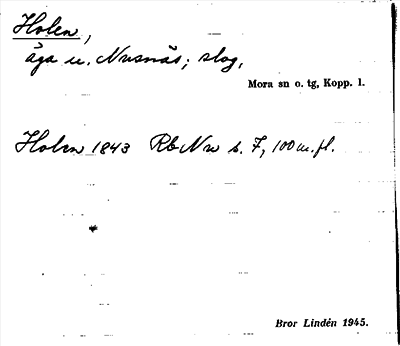 Holen,
äga u. Nusnäs; slog.
Mora sn o. tg, Kopp. l.
Holen 1843 Rb Nu s. 7, 100 m. fl.
Bror Lindén 1945.